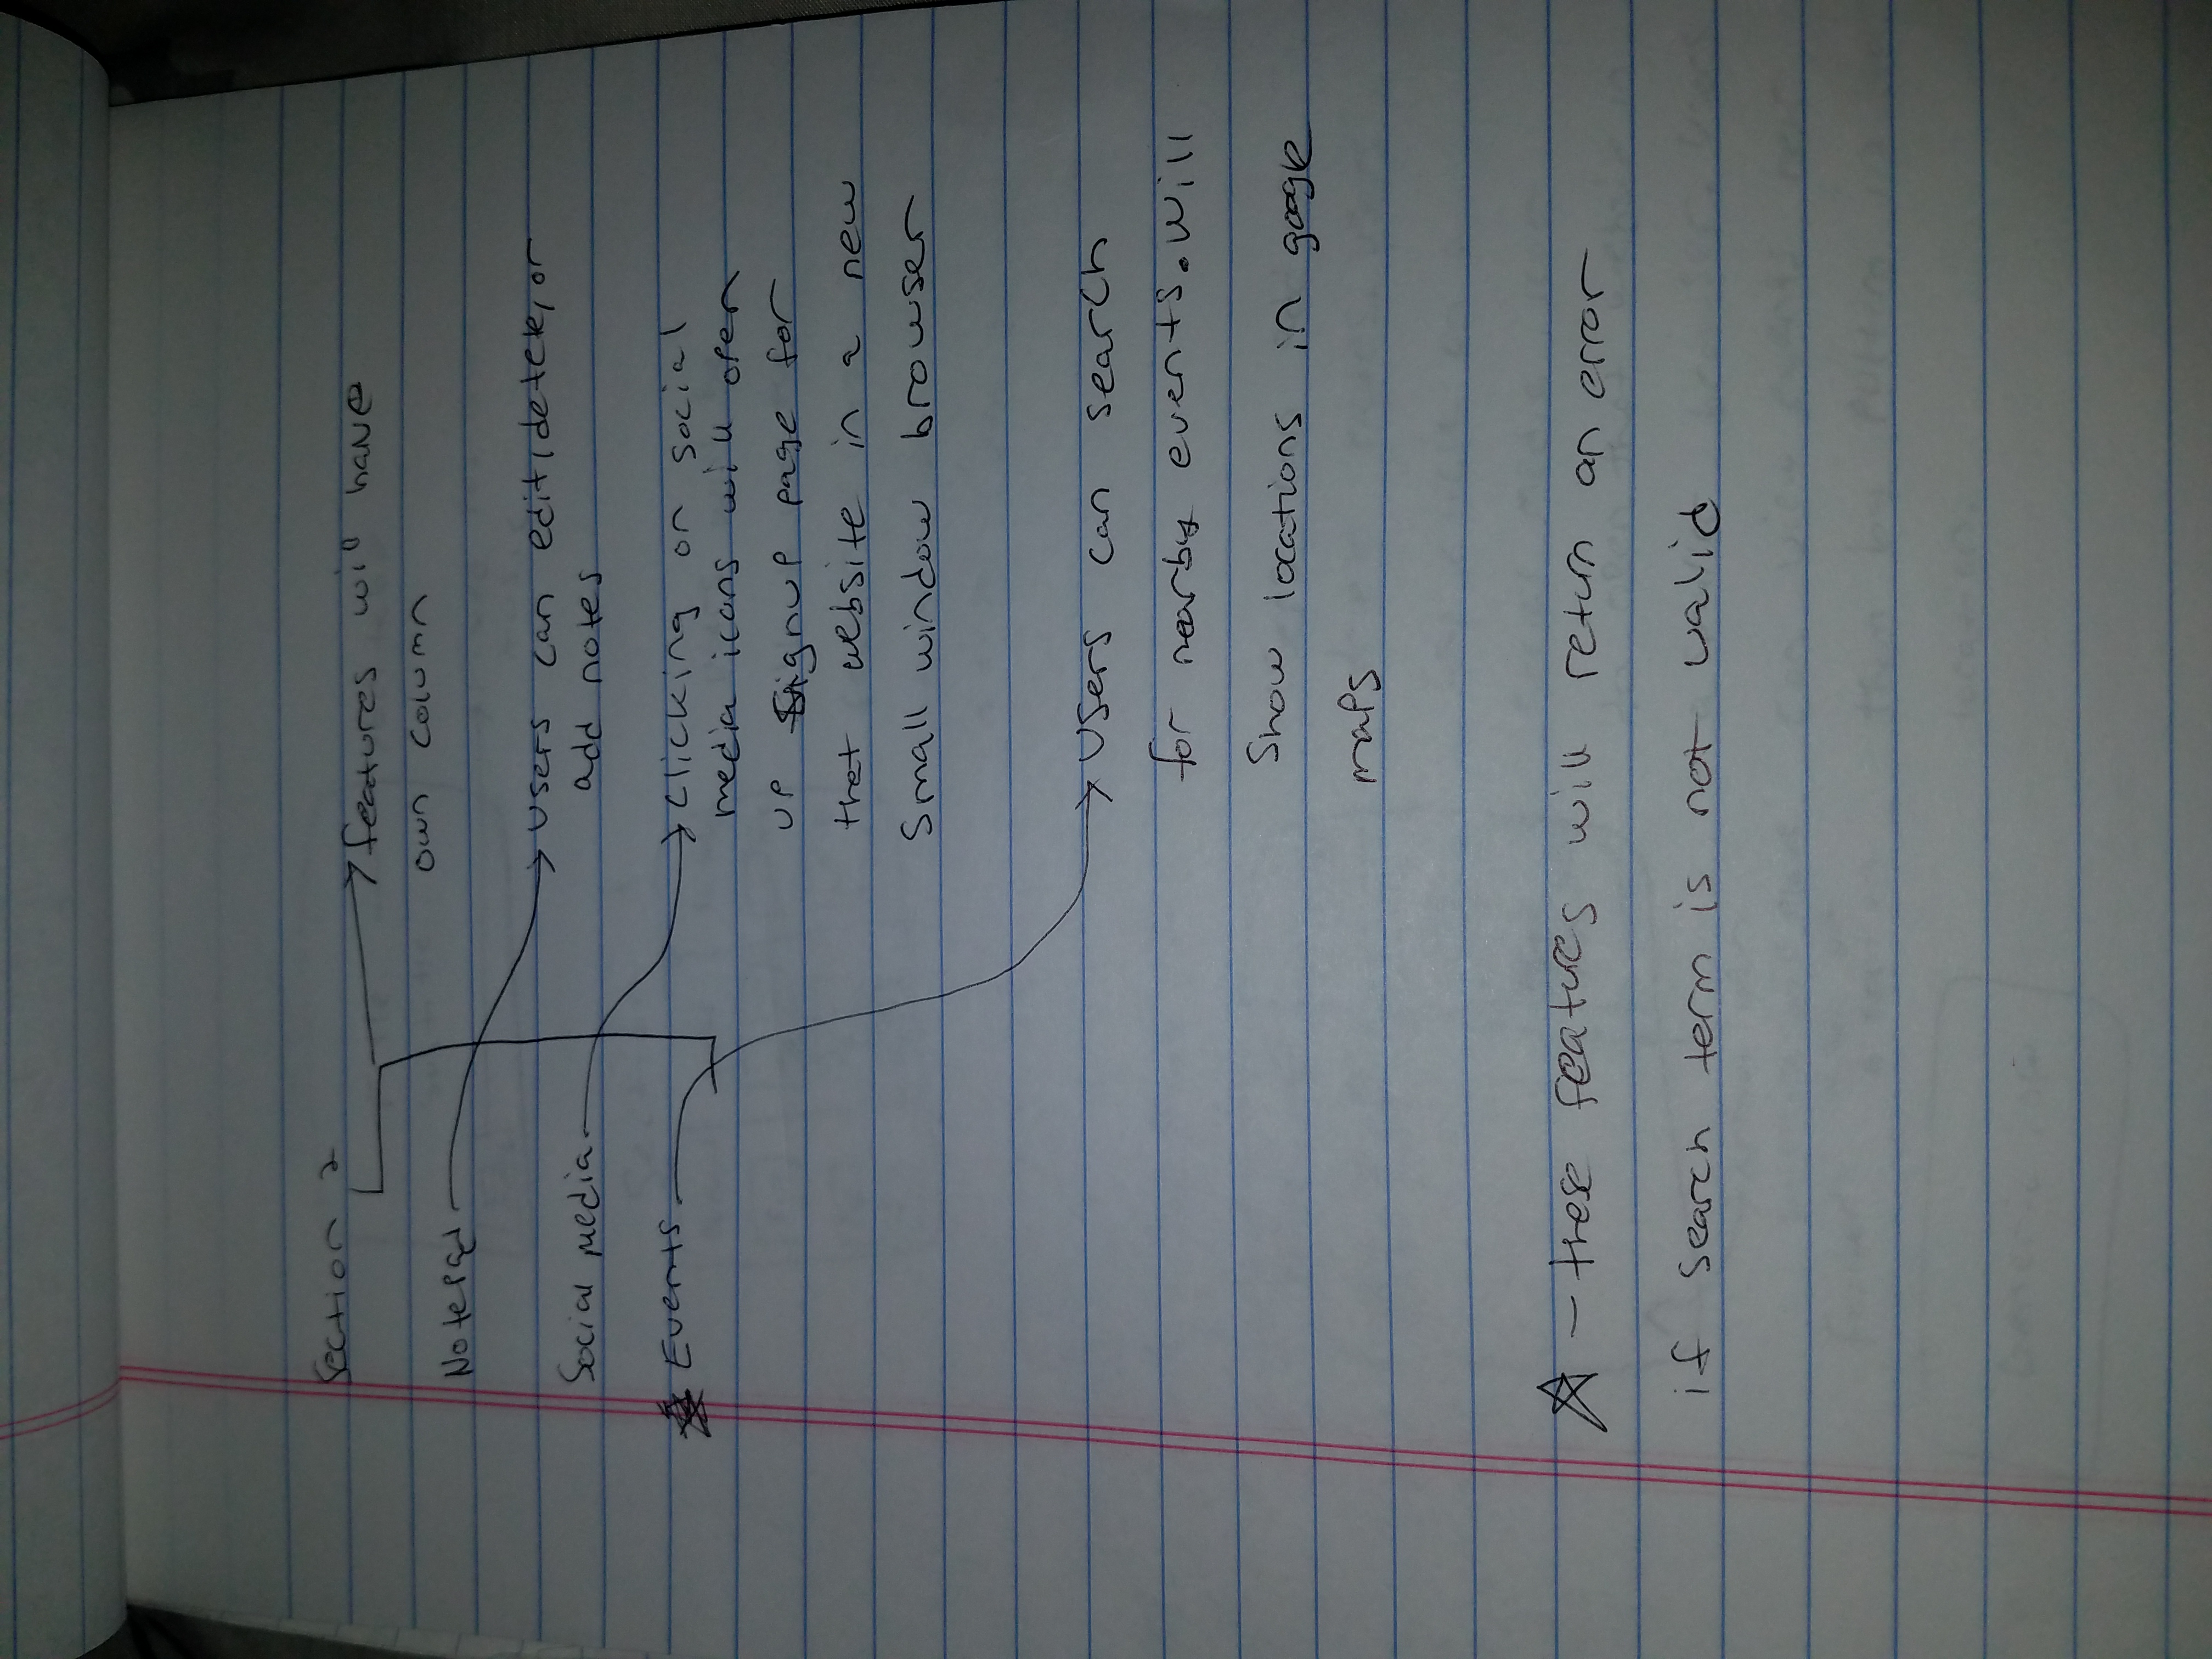 Section 2
features will have
own column
Notepad
Users can edit, detele, or
add notes
Social media
Events
clicking on social
media icons will open
up signup page for
that website in a new
small window browser
Users can search
for nearby events. Will
show locations in google
maps
☆ - these features will return an error
if search term is not valid